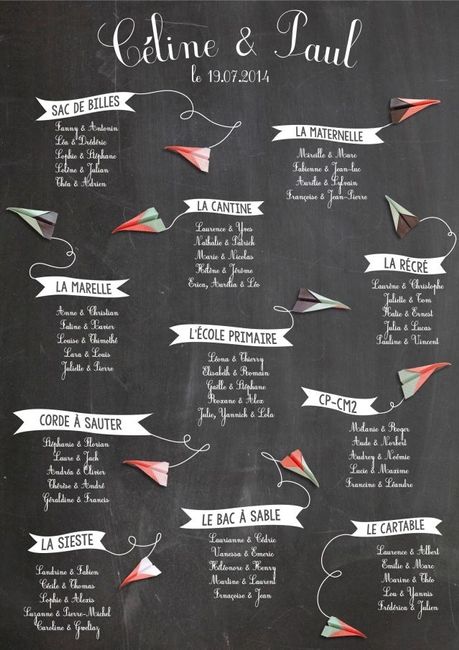 Céline & Paul
le 19.07.2014
SAC DE BILLES
Fanny & Antonin
Léa & Frédéric
Sophie & Stéphane
Solène & Julian
Théa & Adrien
LA MATERNELLE
Mireille & Marc
Fabienne & Jean-luc
Aurélie & Sylvain
Françoise & Jean-Pierre
LA CANTINE
Laurence & Yves
Nathalie & Patrick
Marie & Nicolas
Hélène & Jérôme
Erica, Aurélia & Léo
LA RÉCRÉ
Laurène & Christophe
Juliette & Tom
Katie & Ernest
Julia & Lucas
Pauline & Vincent
LA MARELLE
Anne & Christian
Fatine & Xavier
Louise & Thimothé
Lara & Louis
Juliette & Pierre
L'ÉCOLE PRIMAIRE
Léona & Thierry
Elisabeth & Romain
Gaëlle & Stéphane
Roxane & Alex
Julie, Yannick & Lola
CP-CM2
Mélanie & Roger
Aude & Norbert
Audrey & Noémie
Lucie & Maxime
Francine & Léandre
CORDE À SAUTER
Stéphanie & Florian
Laure & Jack
Andréa & Olivier
Thérèse & André
Géraldine & Francis
LE BAC À SABLE
Laurianne & Cédric
Vanessa & Emeric
Héléonore & Henry
Martine & Laurent
Frnaçoise & Jean
LE CARTABLE
Laurence & Albert
Emilie & Marc
Marine & Théo
Lou & Yannis
Frédérica & Julien
LA SIESTE
Sandrine & Fabien
Cécile & Thomas
Sophie & Alexis
Suzanne & Pierre-Michel
Caroline & Gweltaz